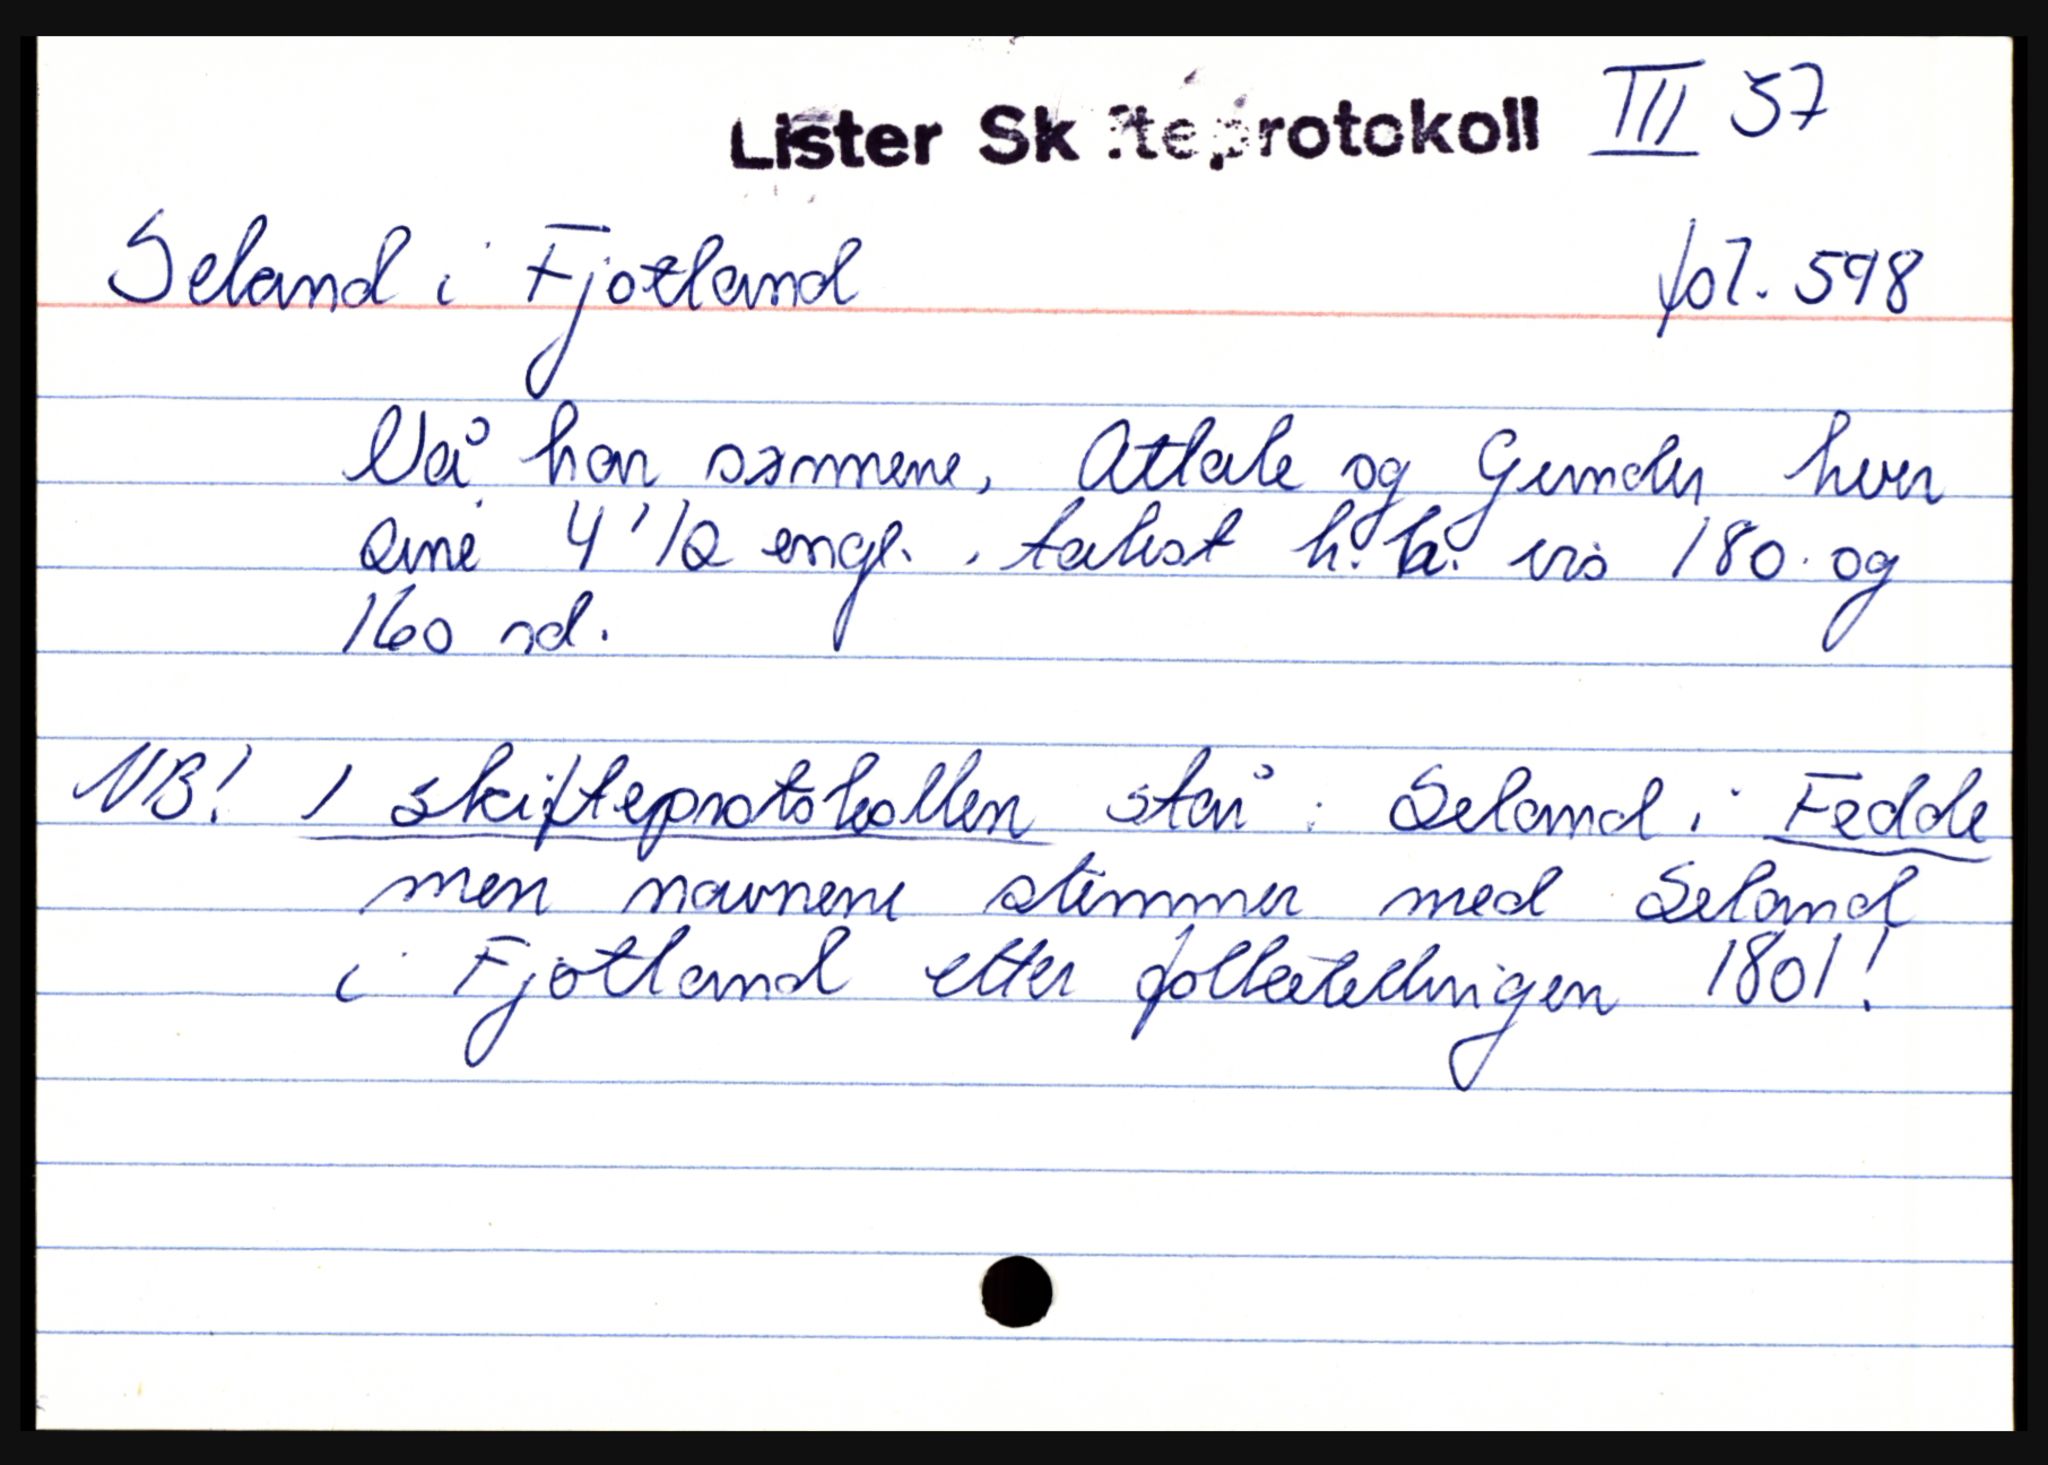 Lister Skifteprotokoll III 57
Seland i Fjotland fol. 598
Nå har sønnene, Atlale og Gunder hver
sine 4 1/2 engl., takst h.h. vis 180. og
160 rd.
NB! I skifteprotokollen står: Seland i Fedde
men navnene stemmer med Seland
i Fjotland etter folketellingen 1801!